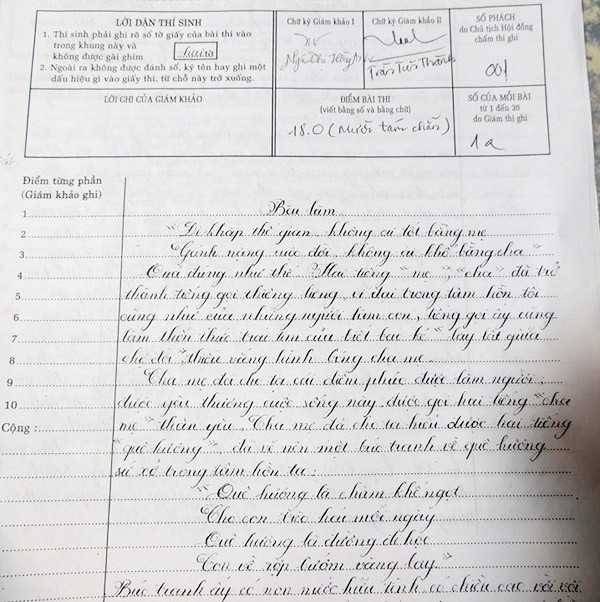 LỜI DẶN THÍ SINH
1. Thí sinh phải ghi rõ số tờ giấy của bài thi vào
trong khung này và
không được gài ghim
2. Ngoài ra không được đánh số, ký tên hay ghi một
dấu hiệu gì vào giấy thi, từ chỗ này trở xuống.
Chữ ký Giám khảo I
Chữ ký Giám khảo II
Trần Tiến Thành
SỐ PHÁCH
do Chủ tịch Hội đồng
chấm thi ghi
001
LỜI GHI CỦA GIÁM KHẢO
ĐIỂM BÀI THI
(viết bằng số và bằng chữ)
18.0 (Mười tám chẵn)
SỐ CỦA MỖI BÀI
từ 1 đến 30
do Giám thị ghi
1a
Điểm từng phần
(Giám khảo ghi)
1 Bài làm
2 "Đi khắp thế gian, không ai tốt bằng mẹ
3 Gánh nặng cuộc đời, không ai khổ bằng cha"
4 Quả đúng như thế! Hai tiếng "mẹ", "cha" đã trở
5 thành tiếng gọi thiêng liêng, vĩ đại trong tâm hồn tôi
6 cũng như của những người làm con, tiếng gọi ấy cũng
7 làm thổn thức trái tim của biết bao kẻ lay lắt giữa
8 chợ đời thiếu vắng hình bóng cha mẹ.
9 Cha mẹ đã cho ta cái diễm phúc được làm người,
10 được yêu thương cuộc sống này, được gọi hai tiếng "cha
Cộng : mẹ" thân yêu. Cha mẹ đã cho ta hiểu được hai tiếng
"quê hương", đã vẽ nên một bức tranh về quê hương
xứ sở trong tâm hồn ta:
"Quê hương là chùm khế ngọt
Cho con trèo hái mỗi ngày
Quê hương là đường đi học
Con về rợp bướm vàng bay"
Bức tranh ấy có non nước hữu tình có chiều cao vời vợi